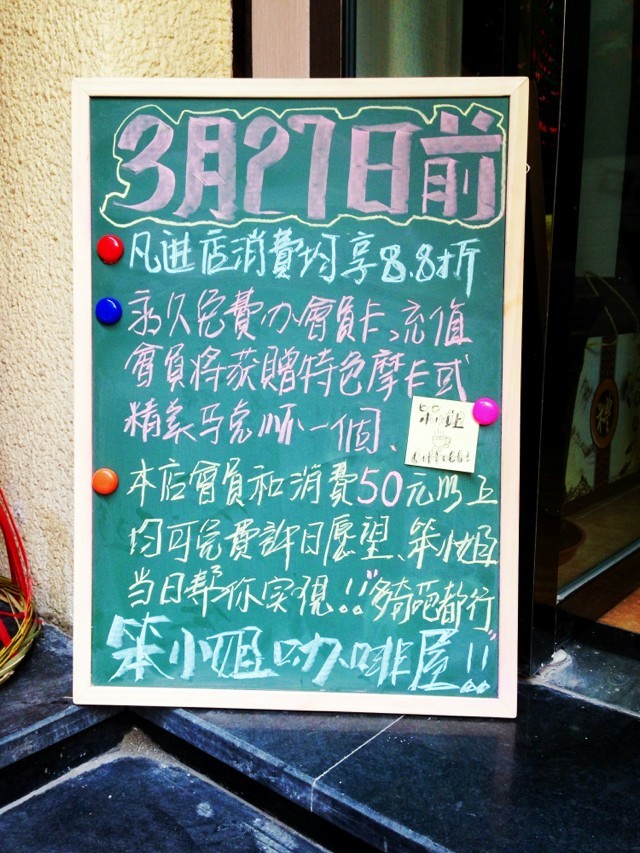 3月27日前
凡进店消費均享8.8折
永久免費办會員卡、充值
會員将获贈特色摩卡或
精美马克杯一個、
本店會員和消費50元以上
均可免費許日愿望、笨小姐
当日帮你实現!!多奇葩都行
笨小姐咖啡屋!!